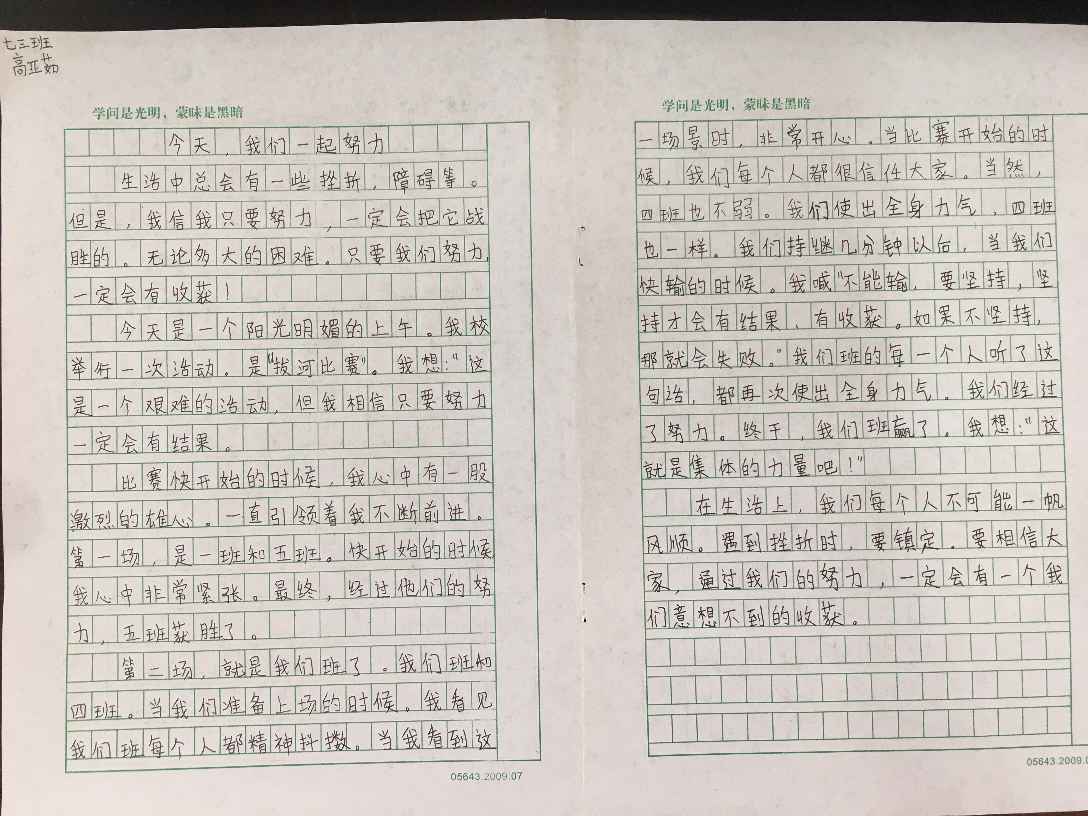 七三班
高亚茹
学问是光明，蒙昧是黑暗
今天，我们一起努力
生活中总会有一些挫折，障碍等。
但是，我信我只要努力，一定会把它战
胜的。无论多大的困难。只要我们努力，
一定会有收获！
今天是一个阳光明媚的上午。我校
举行一次活动。是"拔河比赛"。我想："这
是一个艰难的活动，但我相信只要努力
一定会有结果。
比赛快开始的时候，我心中有一股
激烈的雄心。一直引领着我不断前进。
第一场，是一班和五班。快开始的时候
我心中非常紧张。最终，经过他们的努
力，五班获胜了。
第二场，就是我们班了。我们班和
四班。当我们准备上场的时候。我看见
我们班每个人都精神抖擞。当我看到这
05643.2009.07
学问是光明，蒙昧是黑暗
一场景时，非常开心。当比赛开始的时
候，我们每个人都很信任大家。当然，
四班也不弱。我们使出全身力气，四班
也一样。我们持继几分钟以后，当我们
快输的时候。我喊"不能输，要坚持，坚
持才会有结果，有收获。如果不坚持，
那就会失败。"我们班的每一个人听了这
句话，都再次使出全身力气。我们经过
了努力。终于，我们班赢了。我想："这
就是集体的力量吧！"
在生活上，我们每个人不可能一帆
风顺。遇到挫折时，要镇定。要相信大
家，通过我们的努力，一定会有一个我
们意想不到的收获。
05643.2009.0